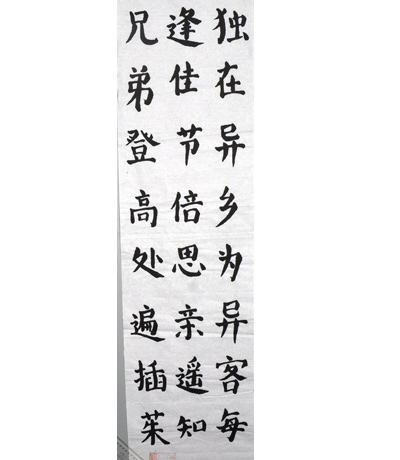 独在异乡为异客每
逢佳节倍思亲遥知
兄弟登高处遍插茱